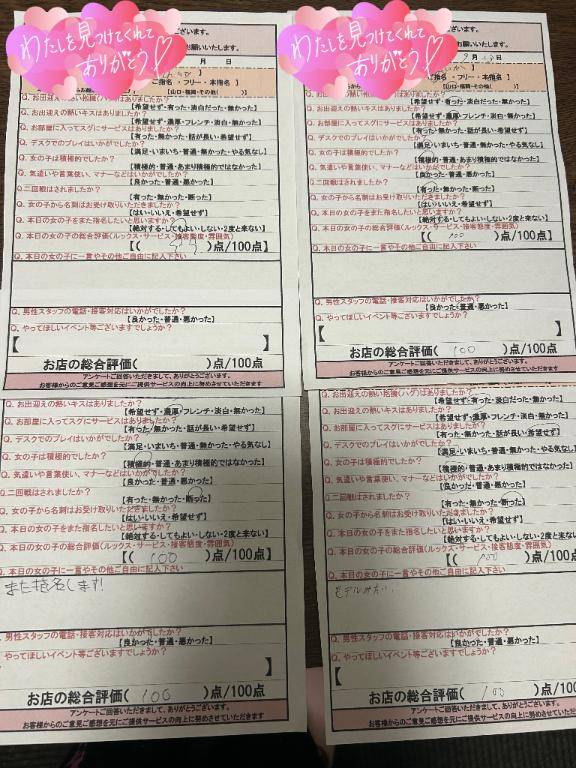 わたしを見つけてくれて
ありがとう
ございます。
お願いいたします。
ご指名・フリー・本指名】
Q. お出迎えの熱い抱擁(ハグ)はありましたか?
【希望せず・有った・淡白だった・無かった】
Q. お出迎えの熱いキスはありましたか?
【希望せず・濃厚・フレンチ・淡白・無かった】
Q. お部屋に入ってスグにサービスはありましたか?
【有った・無かった・話が長い・希望せず】
Q. デスクでのプレイはいかがでしたか?
【満足・いまいち・普通・無かった・やる気なし】
Q. 女の子は積極的でしたか?
【積極的・普通・あまり積極的ではなかった】
Q. 気遣いや言葉使い、マナーなどはいかがでしたか?
【良かった・普通・悪かった】
Q.二回戦はされましたか?
【有った・無かった・断った】
Q. 女の子から名刺はお受け取りいただきましたか?
【はい・いいえ・希望せず】
Q. 本日の女の子をまた指名したいと思いますか?
【絶対する・してもよい・しない・2度と来ない】
Q. 本日の女の子の総合評価(ルックス・サービス・接客態度・雰囲気)
)点/100点】
Q. 本日の女の子に一言やその他ご自由に記入下さい
Q. 男性スタッフの電話・接客対応はいかがでしたか?
【良かった・普通・悪かった】
Q. やってほしいイベント等ございますでしょうか?
【
お店の総合評価( )点/100点
アンケートご回答いただきまして、ありがとうございます。
お客様からのご意見ご感想を元にご提供サービスの向上に努めさせていただきます
わたしを見つけてくれて
ありがとう
ございます。
お願いいたします。
9月
日
ご指名・フリー・本指名】
【山口・福岡・その他( )】
Q. お出迎えの熱い抱擁(ハグ)はありましたか?
【希望せず・有った・淡白だった・無かった】
Q. お出迎えの熱いキスはありましたか?
【希望せず・濃厚・フレンチ・淡白・無かった】
Q. お部屋に入ってスグにサービスはありましたか?
【有った・無かった・話が長い・希望せず】
Q. デスクでのプレイはいかがでしたか?
【満足・いまいち・普通・無かった・やる気なし】
Q. 女の子は積極的でしたか?
【積極的・普通・あまり積極的ではなかった】
Q. 気遣いや言葉使い、マナーなどはいかがでしたか?
【良かった・普通・悪かった】
Q.二回戦はされましたか?
【有った・無かった・断った】
Q. 女の子から名刺はお受け取りいただきましたか?
【はい・いいえ・希望せず】
Q. 本日の女の子をまた指名したいと思いますか?
【絶対する・してもよい・しない・2度と来ない】
Q. 本日の女の子の総合評価(ルックス・サービス・接客態度・雰囲気)
【( 100 )点/100点】
Q. 本日の女の子に一言やその他ご自由に記入下さい
Q. 男性スタッフの電話・接客対応はいかがでしたか?
【良かった・普通・悪かった】
Q. やってほしいイベント等ございますでしょうか?
【
お店の総合評価( 100 )点/100点
アンケートご回答いただきまして、ありがとうございます。
お客様からのご意見ご感想を元にご提供サービスの向上に努めさせていただきます
Q. お出迎えの熱いキスはありましたか?
【希望せず・濃厚・フレンチ・淡白・無かった】
Q. お部屋に入ってスグにサービスはありましたか?
【有った・無かった・話が長い・希望せず】
Q. デスクでのプレイはいかがでしたか?
【満足・いまいち・普通・無かった・やる気なし】
Q. 女の子は積極的でしたか?
【積極的・普通・あまり積極的ではなかった】
Q. 気遣いや言葉使い、マナーなどはいかがでしたか?
【良かった・普通・悪かった】
Q.二回戦はされましたか?
【有った・無かった・断った】
Q. 女の子から名刺はお受け取りいただきましたか?
【はい・いいえ・希望せず】
Q. 本日の女の子をまた指名したいと思いますか?
【絶対する・してもよい・しない・2度と来ない】
Q. 本日の女の子の総合評価(ルックス・サービス・接客態度・雰囲気)
【( 100 )点/100点】
Q. 本日の女の子に一言やその他ご自由に記入下さい
また指名します!
Q. 男性スタッフの電話・接客対応はいかがでしたか?
【良かった・普通・悪かった】
Q. やってほしいイベント等ございますでしょうか?
】
お店の総合評価( 100 )点/100点
アンケートご回答いただきまして、ありがとうございます。
お客様からのご意見ご感想を元にご提供サービスの向上に努めさせていただきます
Q. お出迎えの熱い抱擁(ハグ)はありましたか?
【希望せず・有った・淡白だった・無かった】
Q. お出迎えの熱いキスはありましたか?
【希望せず・濃厚・フレンチ・淡白・無かった】
Q. お部屋に入ってスグにサービスはありましたか?
【有った・無かった・話が長い・希望せず】
Q. デスクでのプレイはいかがでしたか?
【満足・いまいち・普通・無かった・やる気なし】
Q. 女の子は積極的でしたか?
【積極的・普通・あまり積極的ではなかった】
Q. 気遣いや言葉使い、マナーなどはいかがでしたか?
【良かった・普通・悪かった】
Q.二回戦はされましたか?
【有った・無かった・断った】
Q. 女の子から名刺はお受け取りいただきましたか?
【はい・いいえ・希望せず】
Q. 本日の女の子をまた指名したいと思いますか?
【絶対する・してもよい・しない・2度と来ない】
Q. 本日の女の子の総合評価(ルックス・サービス・接客態度・雰囲気)
【( 100 )点/100点】
Q. 本日の女の子に一言やその他ご自由に記入下さい
Q. 男性スタッフの電話・接客対応はいかがでしたか?
【良かった・普通・悪かった】
Q. やってほしいイベント等ございますでしょうか?
】
お店の総合評価( 100 )点/100点
アンケートご回答いただきまして、ありがとうございます。
お客様からのご意見ご感想を元にご提供サービスの向上に努めさせていただきます